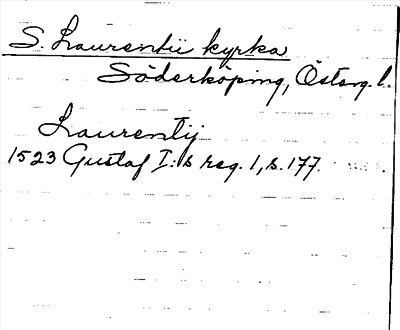 S. Laurentii kyrka
Söderköping, Österg. l.
Laurentij
1523 Gustaf I:s reg. 1, s. 177.